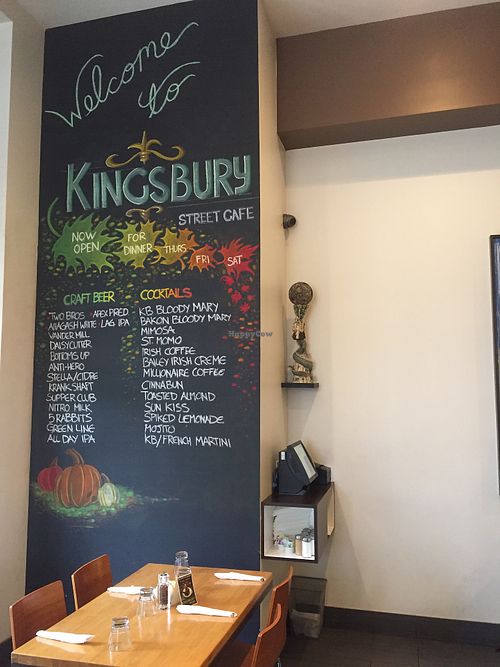 Welcome
to
KINGSBURY
STREET CAFE
NOW
OPEN
FOR
DINNER
THURS
FRI
SAT
CRAFT BEER
TWO BROS. APEX PRED.
ALLAGASH WHITE • LAG. IPA
VANDER MILL
DAISY CUTTER
BOTTOMS UP
ANTI-HERO
STELLA/CIDRE
KRANKSHAFT
SUPPER CLUB
NITRO MILK
5 RABBITS
GREEN LINE
ALL DAY IPA
COCKTAILS
KB BLOODY MARY
BAKON BLOODY MARY
MIMOSA
ST. MOMO
IRISH COFFEE
BAILEY IRISH CREME
MILLIONAIRE COFFEE
CINNABUN
TOASTED ALMOND
SUN KISS
SPIKED LEMONADE
MOJITO
KB/FRENCH MARTINI
HappyCow